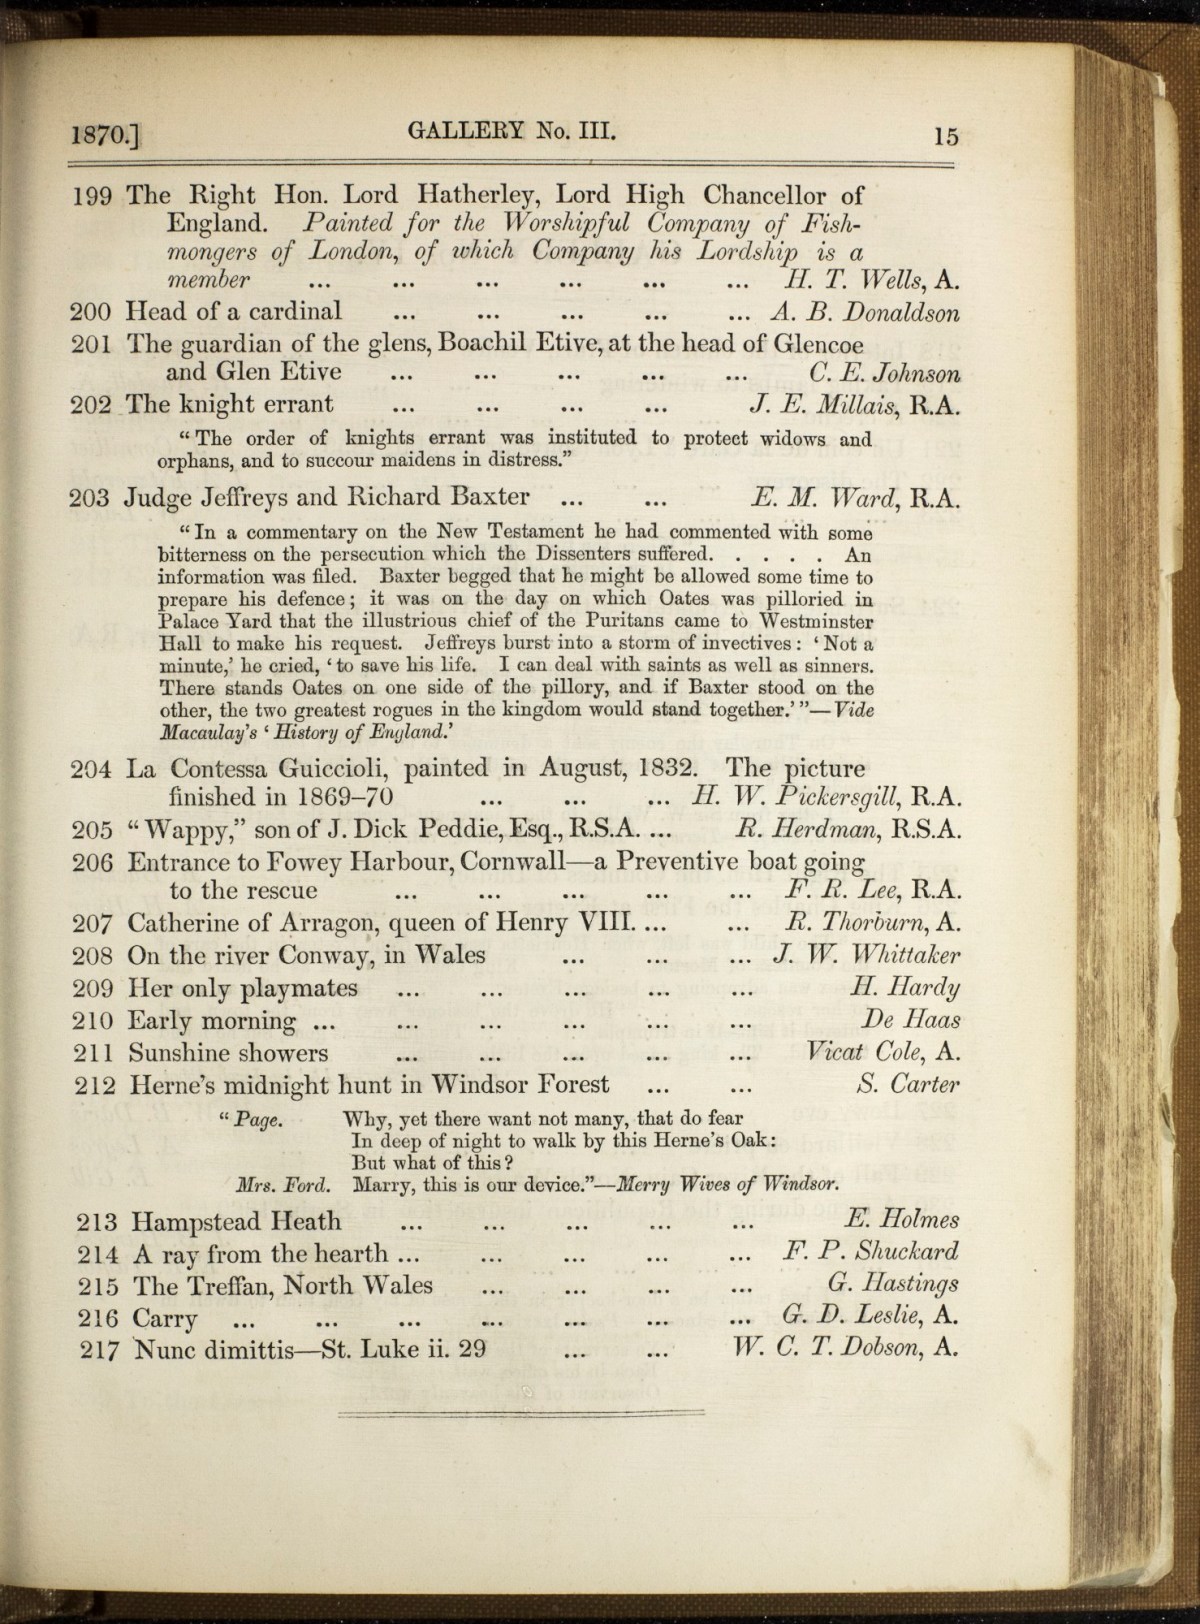 1870.] GALLERY No. III. 15
199 The Right Hon. Lord Hatherley, Lord High Chancellor of
England. Painted for the Worshipful Company of Fish-
mongers of London, of which Company his Lordship is a
member ... ... ... ... ... ... H. T. Wells, A.
200 Head of a cardinal ... ... ... ... ... A. B. Donaldson
201 The guardian of the glens, Boachil Etive, at the head of Glencoe
and Glen Etive ... ... ... ... ... C. E. Johnson
202 The knight errant ... ... ... ... J. E. Millais, R.A.
“The order of knights errant was instituted to protect widows and
orphans, and to succour maidens in distress.”
203 Judge Jeffreys and Richard Baxter ... ... E. M. Ward, R.A.
“In a commentary on the New Testament he had commented with some
bitterness on the persecution which the Dissenters suffered. . . . . . An
information was filed. Baxter begged that he might be allowed some time to
prepare his defence; it was on the day on which Oates was pilloried in
Palace Yard that the illustrious chief of the Puritans came to Westminster
Hall to make his request. Jeffreys burst into a storm of invectives: ‘Not a
minute,’ he cried, ‘to save his life. I can deal with saints as well as sinners.
There stands Oates on one side of the pillory, and if Baxter stood on the
other, the two greatest rogues in the kingdom would stand together.’”—Vide
Macaulay's ‘History of England.’
204 La Contessa Guiccioli, painted in August, 1832. The picture
finished in 1869–70 ... ... ... H. W. Pickersgill, R.A.
205 “Wappy,” son of J. Dick Peddie, Esq., R.S.A. ... R. Herdman, R.S.A.
206 Entrance to Fowey Harbour, Cornwall—a Preventive boat going
to the rescue ... ... ... ... ... F. R. Lee, R.A.
207 Catherine of Arragon, queen of Henry VIII. ... ... R. Thorburn, A.
208 On the river Conway, in Wales ... ... ... J. W. Whittaker
209 Her only playmates ... ... ... ... ... H. Hardy
210 Early morning ... ... ... ... ... ... De Haas
211 Sunshine showers ... ... ... ... ... Vicat Cole, A.
212 Herne's midnight hunt in Windsor Forest ... ... S. Carter
“Page. Why, yet there want not many, that do fear
In deep of night to walk by this Herne's Oak:
But what of this?
Mrs. Ford. Marry, this is our device.”—Merry Wives of Windsor.
213 Hampstead Heath ... ... ... ... ... E. Holmes
214 A ray from the hearth ... ... ... ... ... F. P. Shuckard
215 The Treffan, North Wales ... ... ... ... G. Hastings
216 Carry ... ... ... ... ... ... ... G. D. Leslie, A.
217 Nunc dimittis—St. Luke ii. 29 ... ... W. C. T. Dobson, A.